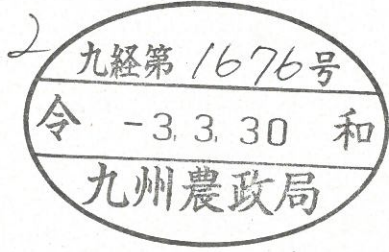 2
九経第1676号
令 -3.3.30 和
九州農政局